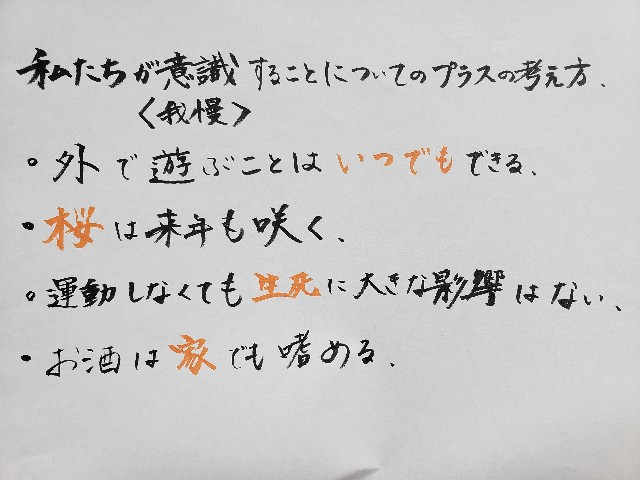 私たちが意識することについてのプラスの考え方、
〈我慢〉
・外で遊ぶことはいつでもできる、
・桜は来年も咲く、
・運動しなくても生死に大きな影響はない、
・お酒は家でも嗜める、